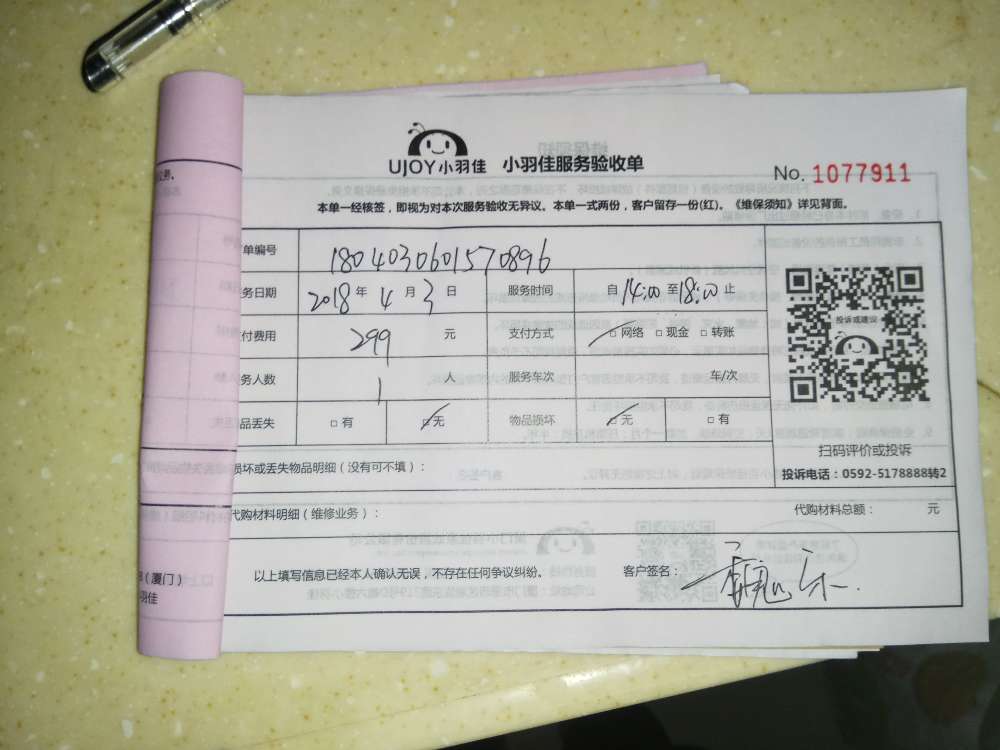 UJOY小羽佳 小羽佳服务验收单
No. 1077911
本单一经核签，即视为对本次服务验收无异议。本单一式两份，客户留存一份(红)。《维保须知》详见背面。
单编号 1804030601570896
务日期 2018 年 4 月 3 日 服务时间 自 14:00 至 18:00 止
付费用 299 元 支付方式 □ 网络 □ 现金 □ 转账
务人数 1 人 服务车次 车/次
品丢失 □ 有 □ 无 物品损坏 □ 无 □ 有
投诉或建议
扫码评价或投诉
投诉电话：0592-5178888转2
损坏或丢失物品明细（没有可不填）：
代购材料明细（维修业务）： 代购材料总额： 元
以上填写信息已经本人确认无误，不存在任何争议纠纷。 客户签名：
（厦门）
羽佳